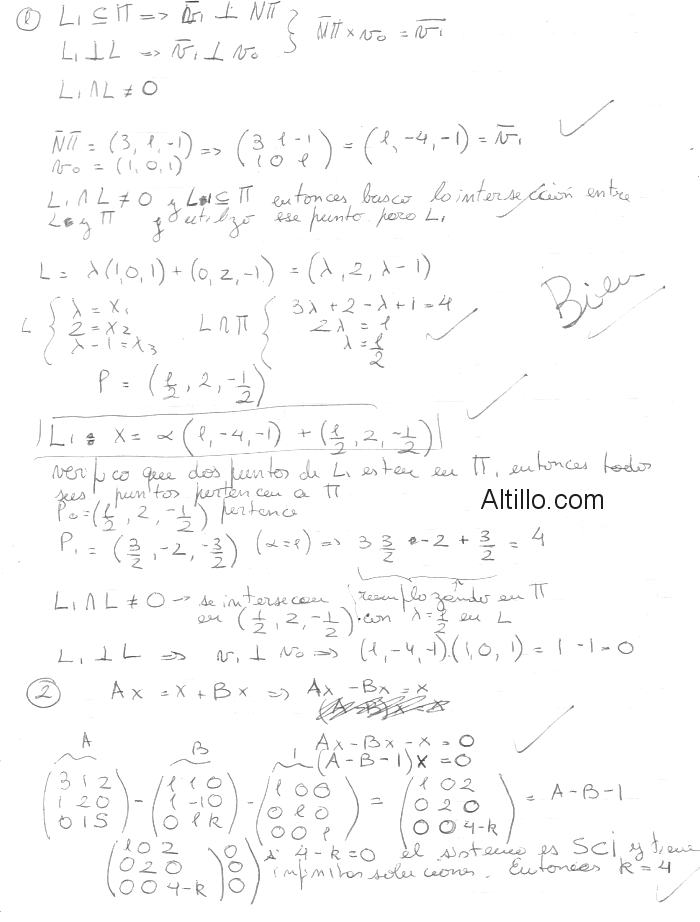 ① L₁ ⊆ Π => v̅₁ ⊥ NΠ } N̅Π × v₀ = v̅₁
L₁ ⊥ L => v̅₁ ⊥ v₀
L₁ ∩ L ≠ 0
N̅Π = (3, 1, -1) => (3 1 -1 / 1 0 1) = (1, -4, -1) = v̅₁
v₀ = (1, 0, 1)
L₁ ∩ L ≠ 0 y L₁ ⊆ Π entonces busco la intersección entre
L y Π y utilizo ese punto para L₁
L = λ(1,0,1) + (0,2,-1) = (λ, 2, λ-1)
L { λ = x₁ L∩Π { 3λ+2-λ+1=4
2 = x₂ 2λ = 1
λ-1 = x₃ λ = 1/2
Bien
P = (1/2, 2, -1/2)
L₁ : X = α(1,-4,-1) + (1/2, 2, -1/2)
verifico que dos puntos de L₁ esten en Π, entonces todos
sus puntos pertencen a Π
Altillo.com
P₀ = (1/2, 2, -1/2) pertence
P₁ = (3/2, -2, -3/2) (α=1) => 3 3/2 - 2 + 3/2 = 4
L₁ ∩ L ≠ 0 → se intersecan reemplazando en Π
en (1/2, 2, -1/2) con λ=1/2 en L
L₁ ⊥ L => v₁ ⊥ v₀ => (1,-4,-1).(1,0,1) = 1-1=0
② Ax = x + Bx => Ax - Bx = x
Ax - Bx - x = 0
A B 1 (A-B-1)x = 0
(3 1 2 / 1 2 0 / 0 1 5) - (1 1 0 / 1 -1 0 / 0 1 k) - (1 0 0 / 0 1 0 / 0 0 1) = (1 0 2 / 0 2 0 / 0 0 4-k) = A-B-1
(1 0 2 / 0 2 0 / 0 0 4-k | 0 / 0 / 0) si 4-k=0 el sistema es SCI y tiene
infinitas soluciones. Entonces k=4